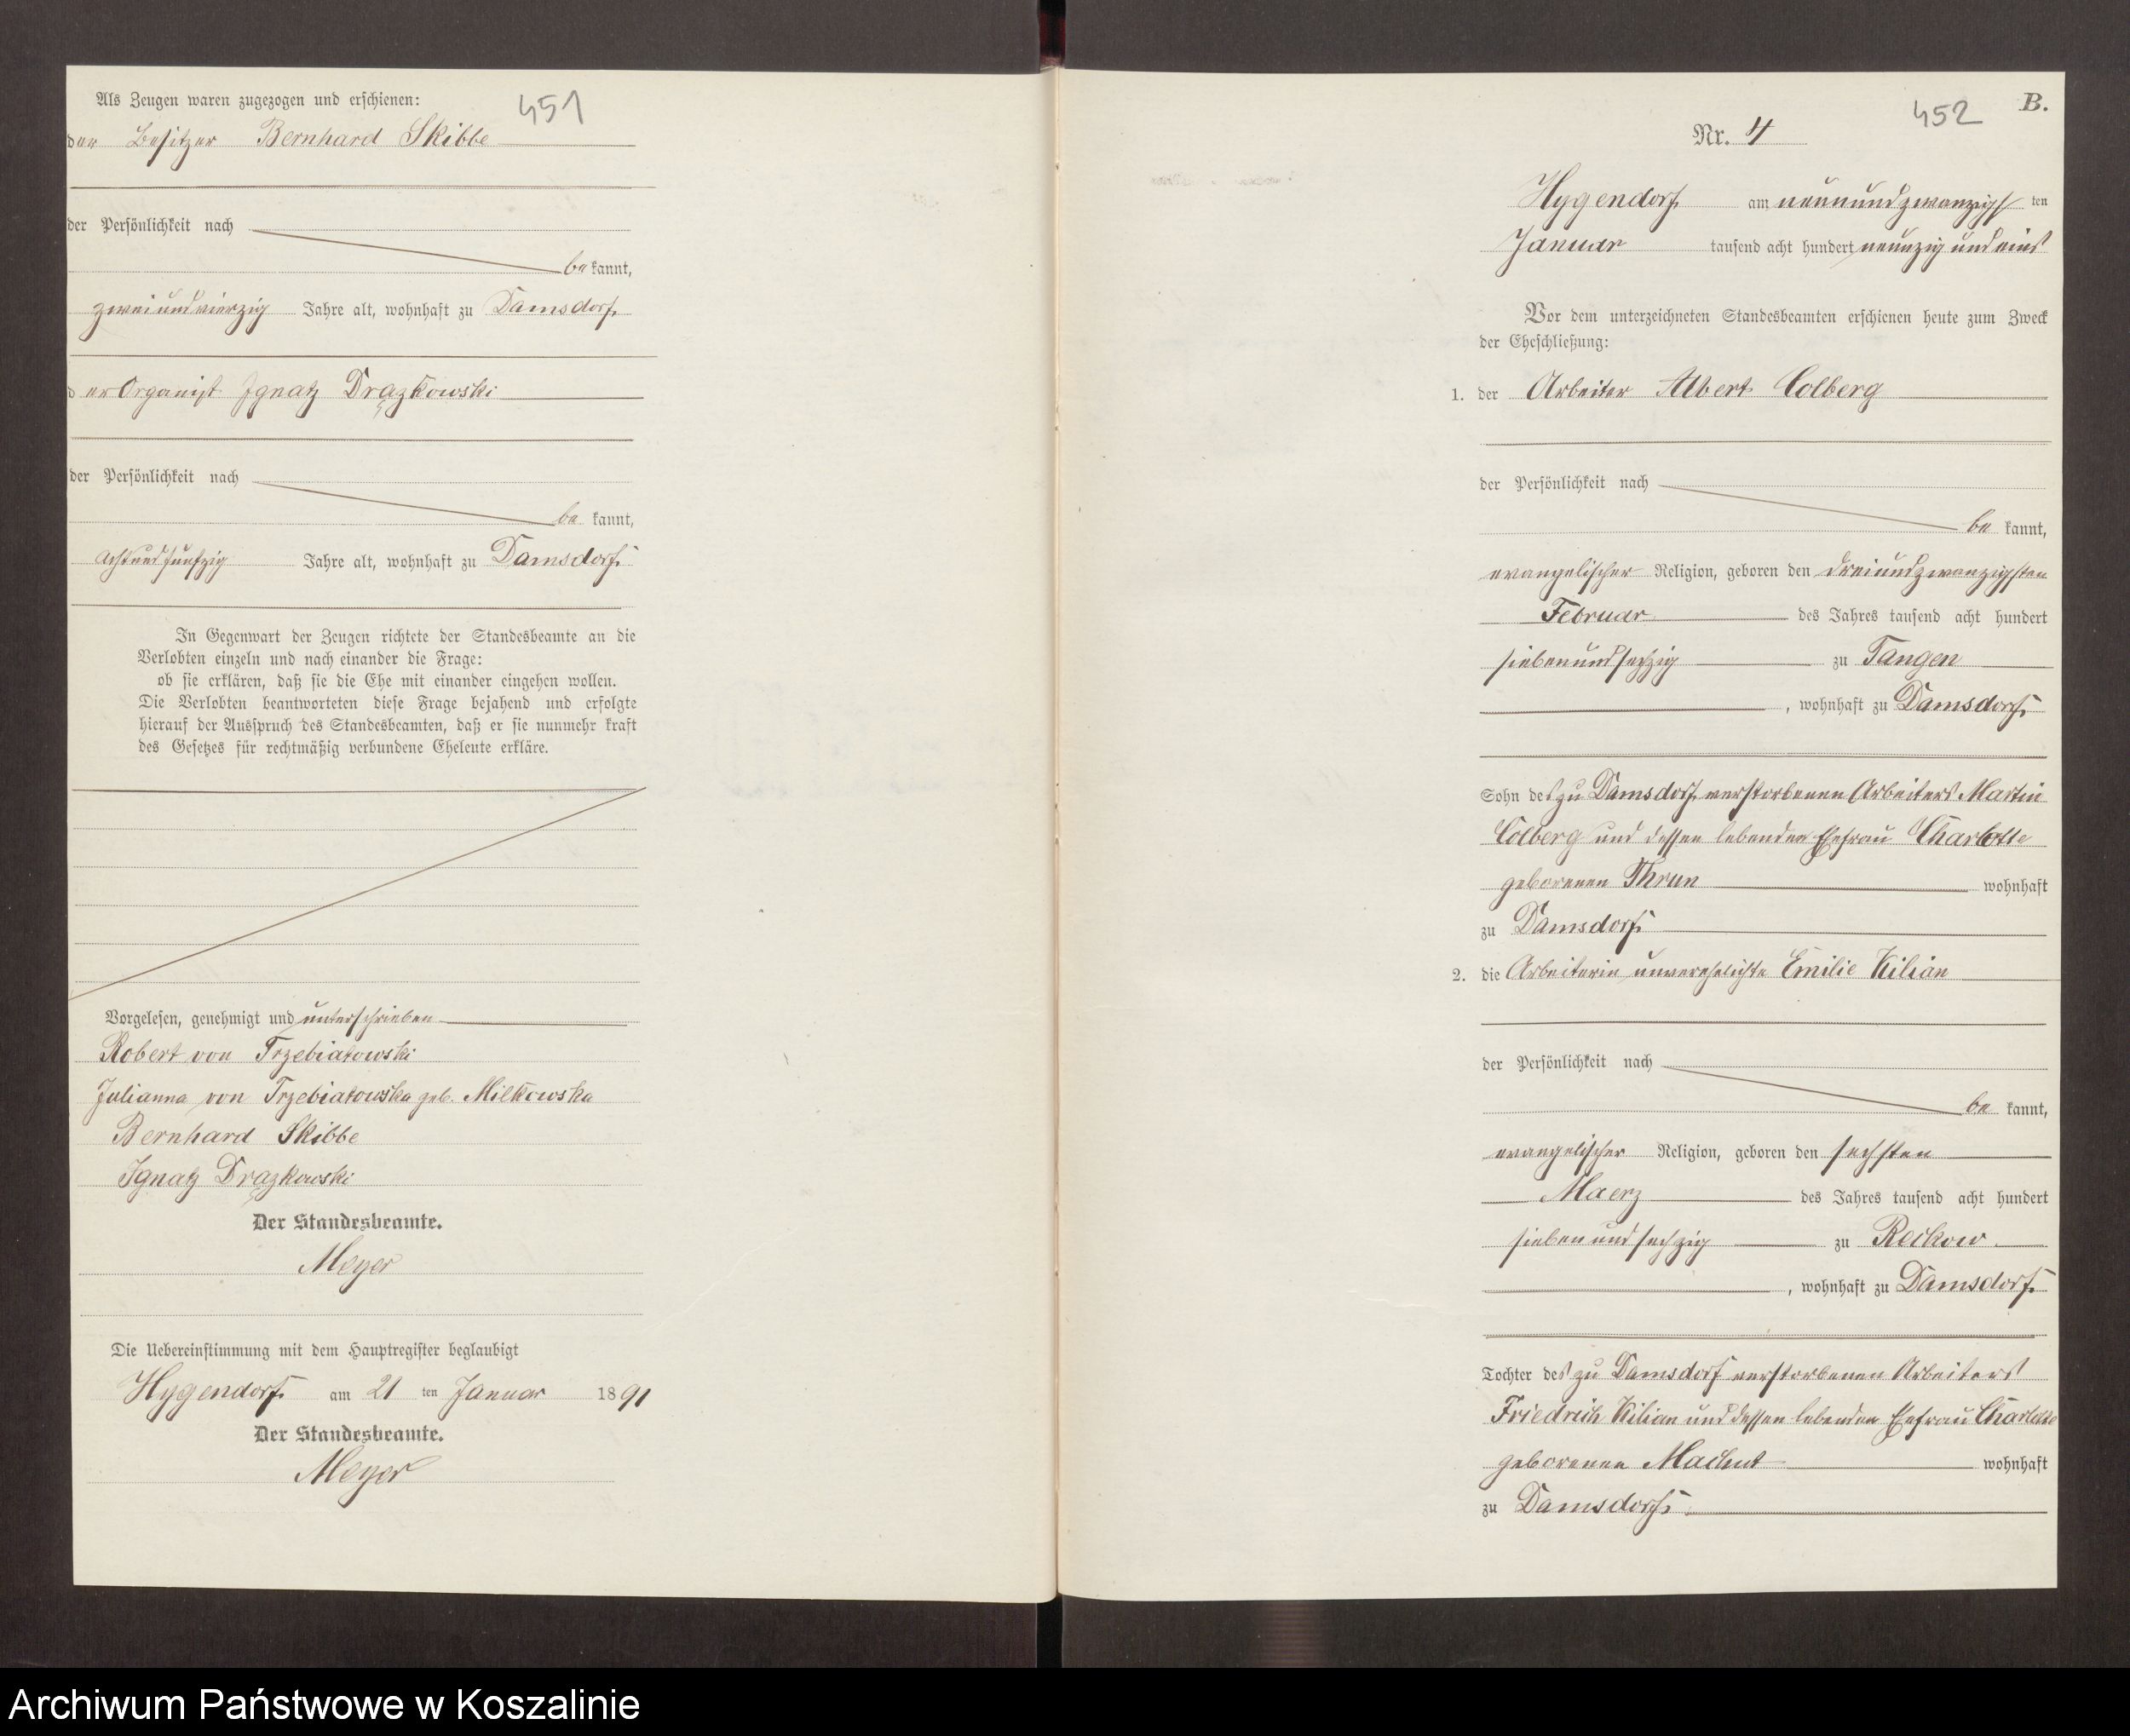 Als Zeugen waren zugezogen und erschienen:
451
der Besitzer Bernhard Skibbe
der Persönlichkeit nach
bekannt,
zweiundvierzig Jahre alt, wohnhaft zu Damsdorf
der Organist Ignatz Drązkowski
der Persönlichkeit nach
be kannt,
achtundfünfzig Jahre alt, wohnhaft zu Damsdorf
In Gegenwart der Zeugen richtete der Standesbeamte an die
Verlobten einzeln und nach einander die Frage:
ob sie erklären, daß sie die Ehe mit einander eingehen wollen.
Die Verlobten beantworteten diese Frage bejahend und erfolgte
hierauf der Ausspruch des Standesbeamten, daß er sie nunmehr kraft
des Gesetzes für rechtmäßig verbundene Eheleute erkläre.
Vorgelesen, genehmigt und unterschrieben
Robert von Trzebiatowski
Julianna von Trzebiatowska geb. Milkowska
Bernhard Skibbe
Ignatz Drązkowski
Der Standesbeamte.
Meyer
Die Uebereinstimmung mit dem Hauptregister beglaubigt
Hygendorf am 21 ten Januar 1891
Der Standesbeamte.
Meyer
B.
452
Nr. 4
Hygendorf am neunundzwanzigsten
Januar tausend acht hundert neunzig und eins
Vor dem unterzeichneten Standesbeamten erschienen heute zum Zweck
der Eheschließung:
1. der Arbeiter Albert Colberg
der Persönlichkeit nach
be kannt,
evangelischer Religion, geboren den dreiundzwanzigsten
Februar des Jahres tausend acht hundert
siebenundsechzig zu Tangen
, wohnhaft zu Damsdorf
Sohn des zu Damsdorf verstorbenen Arbeiters Martin
Colberg und dessen lebenden Ehefrau Charlotte
geborenen Thrun wohnhaft
zu Damsdorf
2. die Arbeiterin unverehelichte Emilie Kilian
der Persönlichkeit nach
be kannt,
evangelischer Religion, geboren den sechsten
Maerz des Jahres tausend acht hundert
sieben und sechzig zu Reckow
, wohnhaft zu Damsdorf
Tochter des zu Damsdorf verstorbenen Arbeiters
Friedrich Kilian und dessen lebenden Ehefrau Charlotte
geborenen Machut wohnhaft
zu Damsdorf
Archiwum Państwowe w Koszalinie